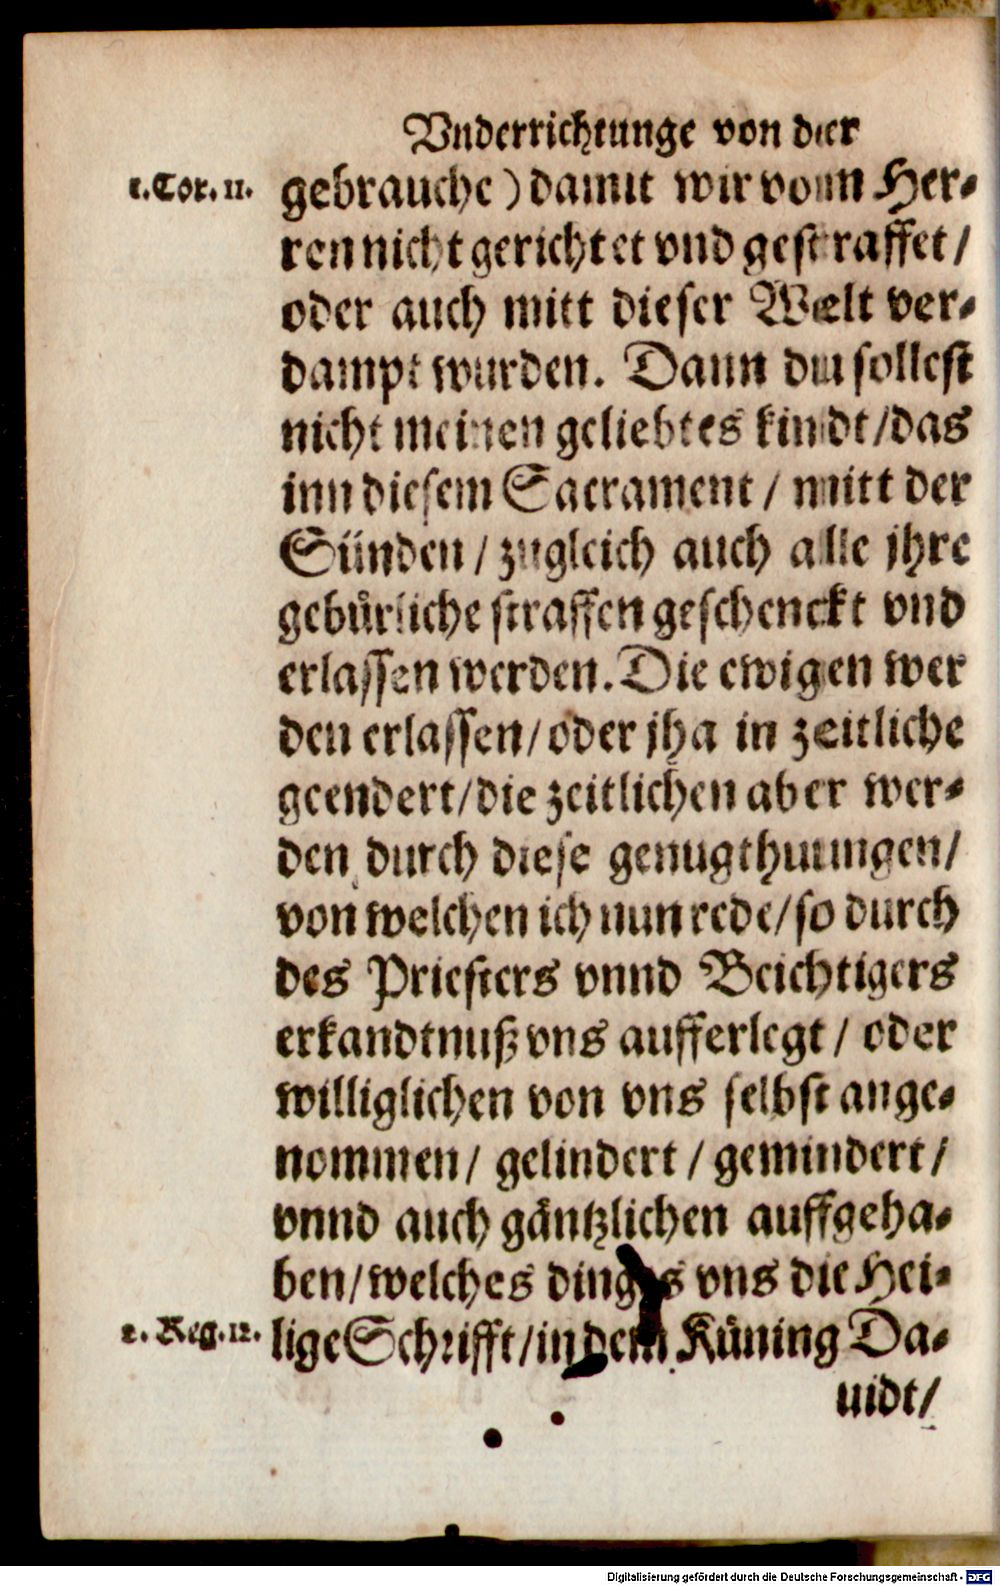 Vnderrichtunge von der
1. Cor. 11. gebrauche) damit wir vom Her⸗
ren nicht gerichtet vnd gestraffet /
oder auch mitt dieser Welt ver⸗
dampt wurden. Dann du sollest
nicht meinen geliebtes kindt / das
inn diesem Sacrament / mitt der
Sünden / zugleich auch alle jhre
gebürliche straffen geschenckt vnd
erlassen werden. Die ewigen wer
den erlassen / oder jha in zeitliche
geendert / die zeitlichen aber wer⸗
den durch diese genugthuungen /
von welchen ich nun rede / so durch
des Priesters vnnd Beichtigers
erkandtnuß vns aufferlegt / oder
williglichen von vns selbst ange⸗
nommen / gelindert / gemindert /
vnnd auch gäntzlichen auffgeha⸗
ben / welches dinges vns die Hei⸗
2. Reg. 12. lige Schrifft / in dem Küning Da⸗
uidt /
Digitalisierung gefördert durch die Deutsche Forschungsgemeinschaft - DFG